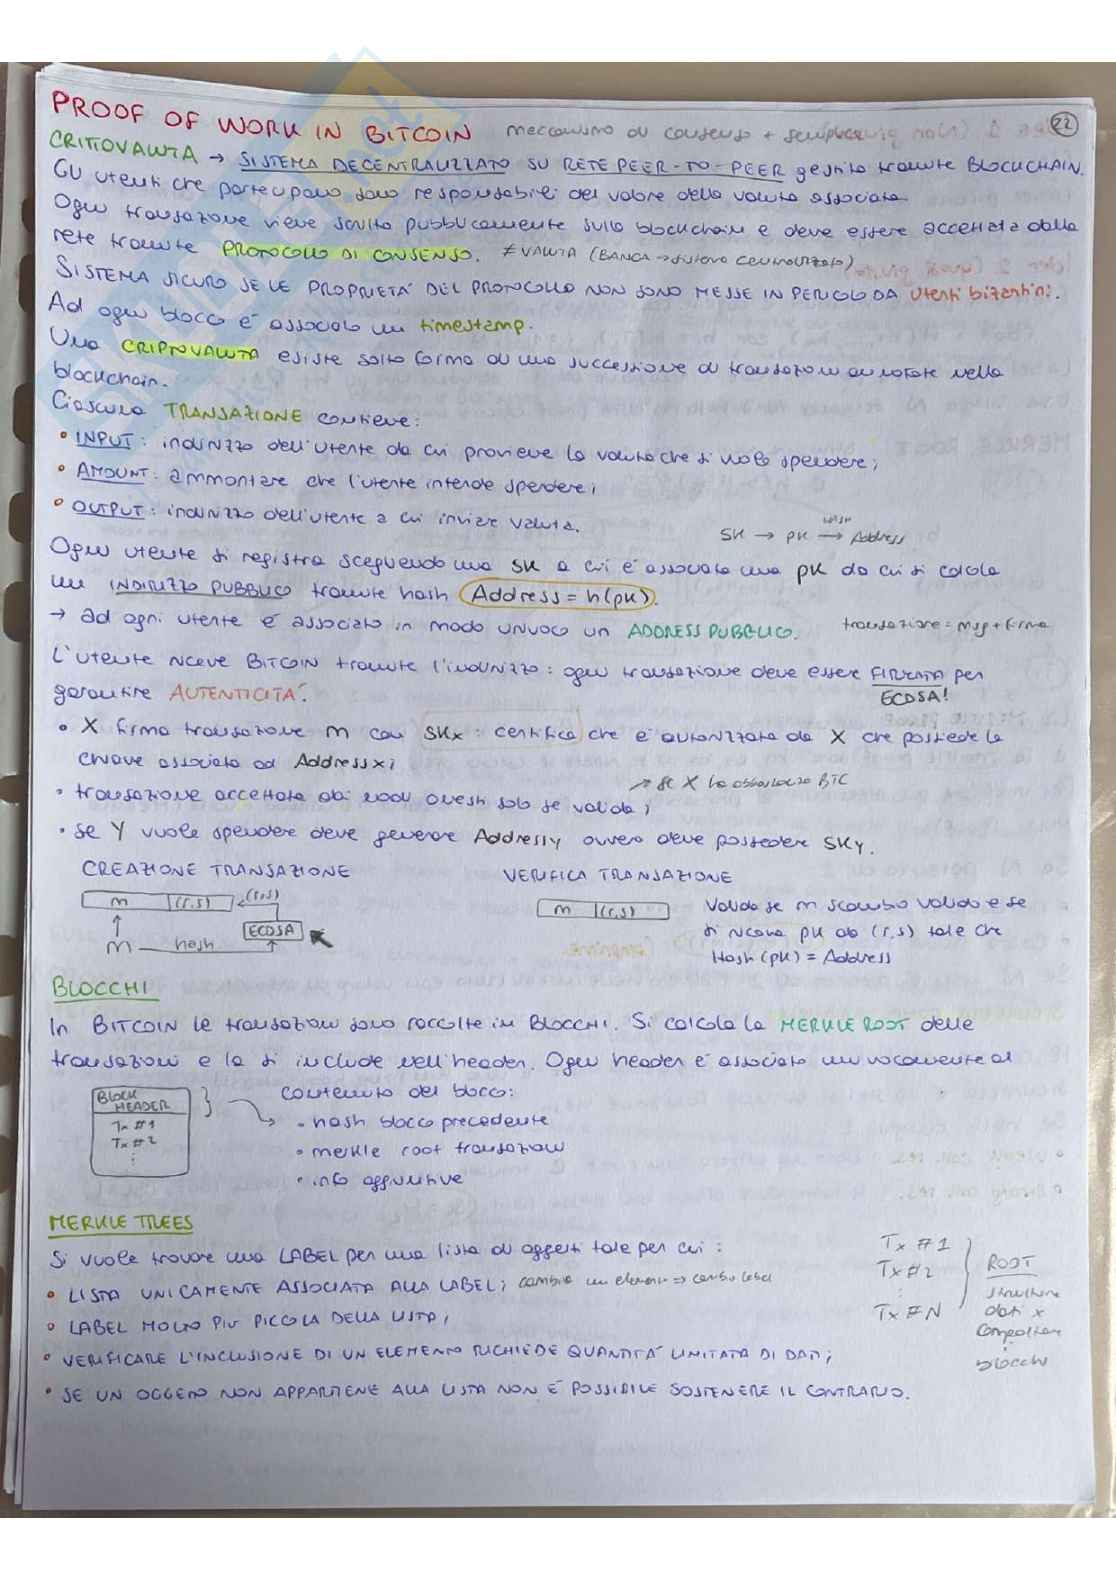 PROOF OF WORK IN BITCOIN meccanismo di consenso + semplice 22
CRITTOVALUTA → SISTEMA DECENTRALIZZATO SU RETE PEER-TO-PEER gestito tramite BLOCKCHAIN.
Gli utenti che partecipano sono responsabili del valore della valuta associata
Ogni transazione viene scritta pubblicamente sulla blockchain e deve essere accettata dalla
rete tramite PROTOCOLLO DI CONSENSO. ≠ VALUTA (BANCA → sistema centralizzato)
SISTEMA SICURO SE LE PROPRIETA' DEL PROTOCOLLO NON SONO MESSE IN PERICOLO DA utenti bizantini.
Ad ogni blocco è associato un timestamp.
Una CRIPTOVALUTA esiste sotto forma di una successione di transazioni annotate nella
blockchain.
Ciascuna TRANSAZIONE contiene:
• INPUT: indirizzo dell'utente da cui proviene la valuta che si vuole spendere;
• AMOUNT: ammontare che l'utente intende spendere;
• OUTPUT: indirizzo dell'utente a cui inviare valuta.
SK → pk → hash Address
Ogni utente si registra scegliendo una SK a cui è associata una pk da cui si calcola
un INDIRIZZO PUBBLICO tramite hash Address = h(pk).
→ ad ogni utente è associato in modo univoco un ADDRESS PUBBLICO. transazione = msg + firma
L'utente riceve BITCOIN tramite l'indirizzo: ogni transazione deve essere FIRMATA per
garantire AUTENTICITA'. ECDSA!
• X firma transazione m con SKx: certifica che è autorizzata da X che possiede la
chiave associata ad Addressx;
→ se X ha abbastanza BTC
• transazione accettata dai nodi onesti solo se valida;
• se Y vuole spendere deve generare Addressy ovvero deve possedere SKy.
CREAZIONE TRANSAZIONE VERIFICA TRANSAZIONE
m (r,s) (r,s)
ECDSA
m hash
m (r,s)
Valida se m scambio valido e se
si ricava pk da (r,s) tale che
Hash(pk) = Address
BLOCCHI
In BITCOIN le transazioni sono raccolte in BLOCCHI. Si calcola la MERKLE ROOT delle
transazioni e la si include nell'header. Ogni header è associato univocamente al
BLOCK
HEADER
Tx #1
Tx #2
⋮
contenuto del blocco:
• hash blocco precedente
• merkle root transazioni
• info aggiuntive
MERKLE TREES
Si vuole trovare una LABEL per una lista di oggetti tale per cui:
• LISTA UNICAMENTE ASSOCIATA ALLA LABEL; cambia un elemento ⇒ cambia label
• LABEL MOLTO PIU PICCOLA DELLA LISTA;
• VERIFICARE L'INCLUSIONE DI UN ELEMENTO RICHIEDE QUANTITA' LIMITATA DI DATI;
• SE UN OGGETTO NON APPARTIENE ALLA LISTA NON È POSSIBILE SOSTENERE IL CONTRARIO.
Tx #1
Tx #2
⋮
Tx #N
ROOT
struttura
dati x
blocchi